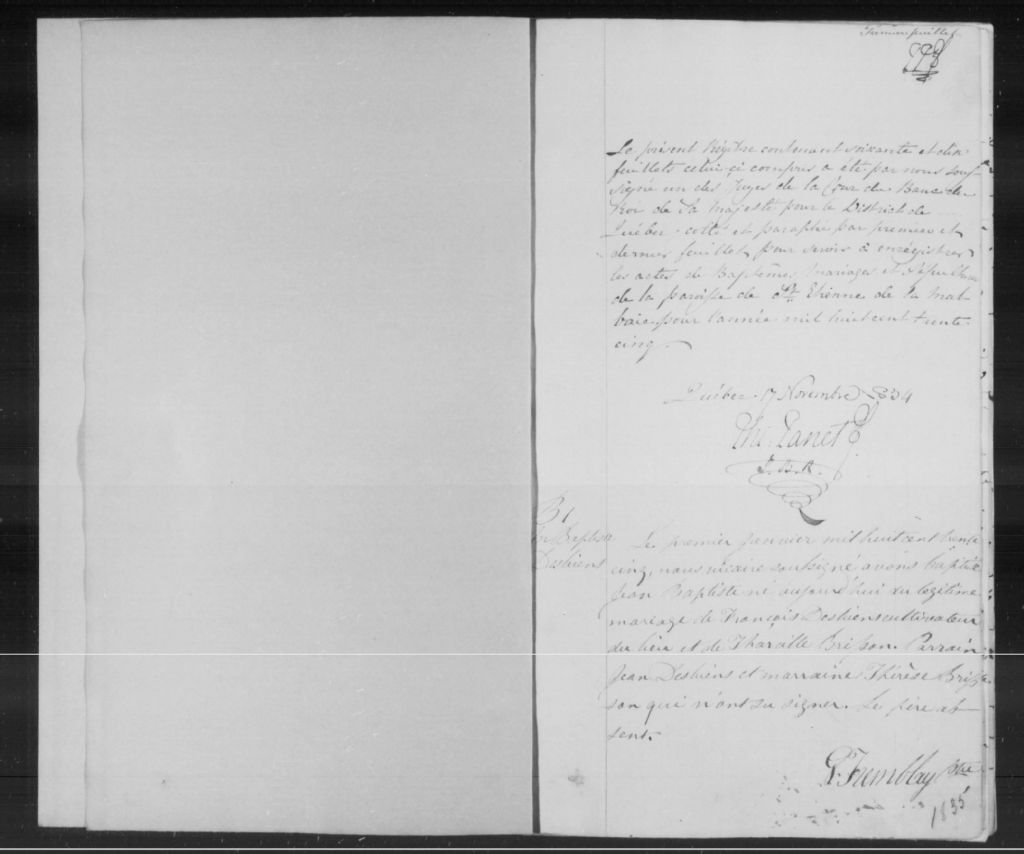 Le présent Régître contenant soixante et dix
feuillets celui-ci compris a été par nous sous
signé un des Juges de la Cour du Banc du
Roi de Sa Majesté pour le District de
Québec cotté et paraphé par premier et
dernier feuillet pour servir à enrégistrer
les actes de Baptêmes Mariages et Sépultures
de la paroisse de St. Etienne de la Mal
baie pour l'année mil huit cent trente
cinq
Québec 17 Novembre 1834
Ths. Panet
J. B. R.
B 1
Jn Baptiste
Desbiens
Le premier janvier mil huit cent trente
cinq, nous vicaire soussigné avons baptisé
Jean Baptiste né aujourd'hui du légitime
mariage de François Desbiens cultivateur
du lieu et de Brisson. Parrain
Jean Desbiens et marraine Thérèse Bris
son qui n'ont su signer. Le père ab
sent.
Tremblay Ptre
1835